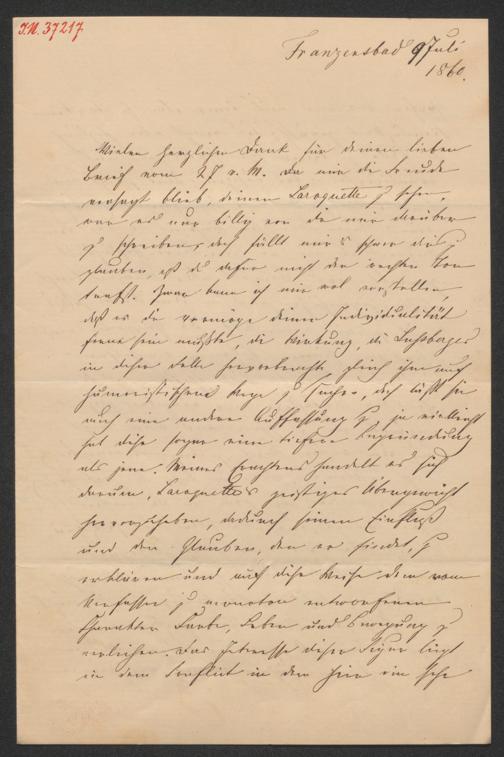 I.N. 37217
Franzensbad 9 Juli
1860.
Vielen herzlichen Dank für deinen lieben
Brief vom 27 v. M. Da mir die Freude
versagt blieb, deinen Laroquette z sehen,
war es nur billig von dir mir darüber
z schreiben, doch fällt mir's schwer dir z
glauben, daß du dafür nicht den rechten Ton
trafst. Zwar kann ich mir wol vorstellen
daß es dir vermöge deiner Individualität
ferne sein mußte, die Wirkung, die
in dieser Rolle hervorbrachte, gleich ihm auf
humoristischem Wege z suchen, doch läßt sie
auch eine andere Auffassung z, ja vielleicht
hat diese sogar eine tiefere Begründung
als jene. Meines Erachtens handelt es sich
darum, Laroquette's geistiges Übergewicht
hervorzuheben, dadurch seinen Einfluß
und den Glauben, den er findet, z
erklären und auf diese Weise dem vom
Verfasser z monoton entworfenen
Charakter Farbe, Leben und Bewegung z
verleihen. Das Interesse dieser Figur liegt
in dem Conflict in dem hier ein sehr